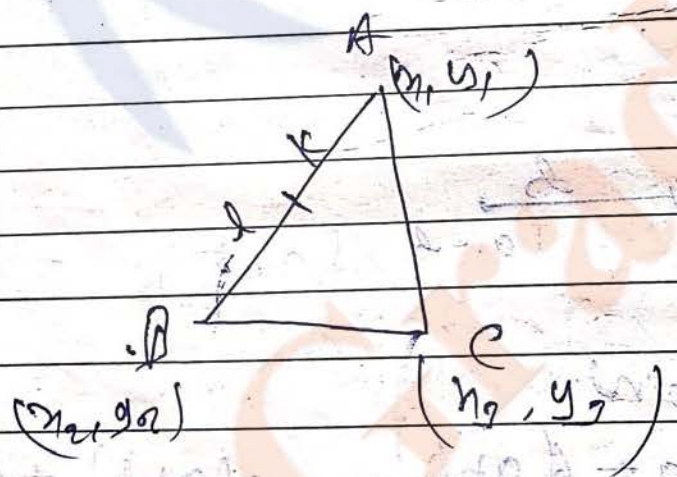 A
(x₁ y₁)
K
l
B
C
(x₂, y₂)
(x₃, y₃)